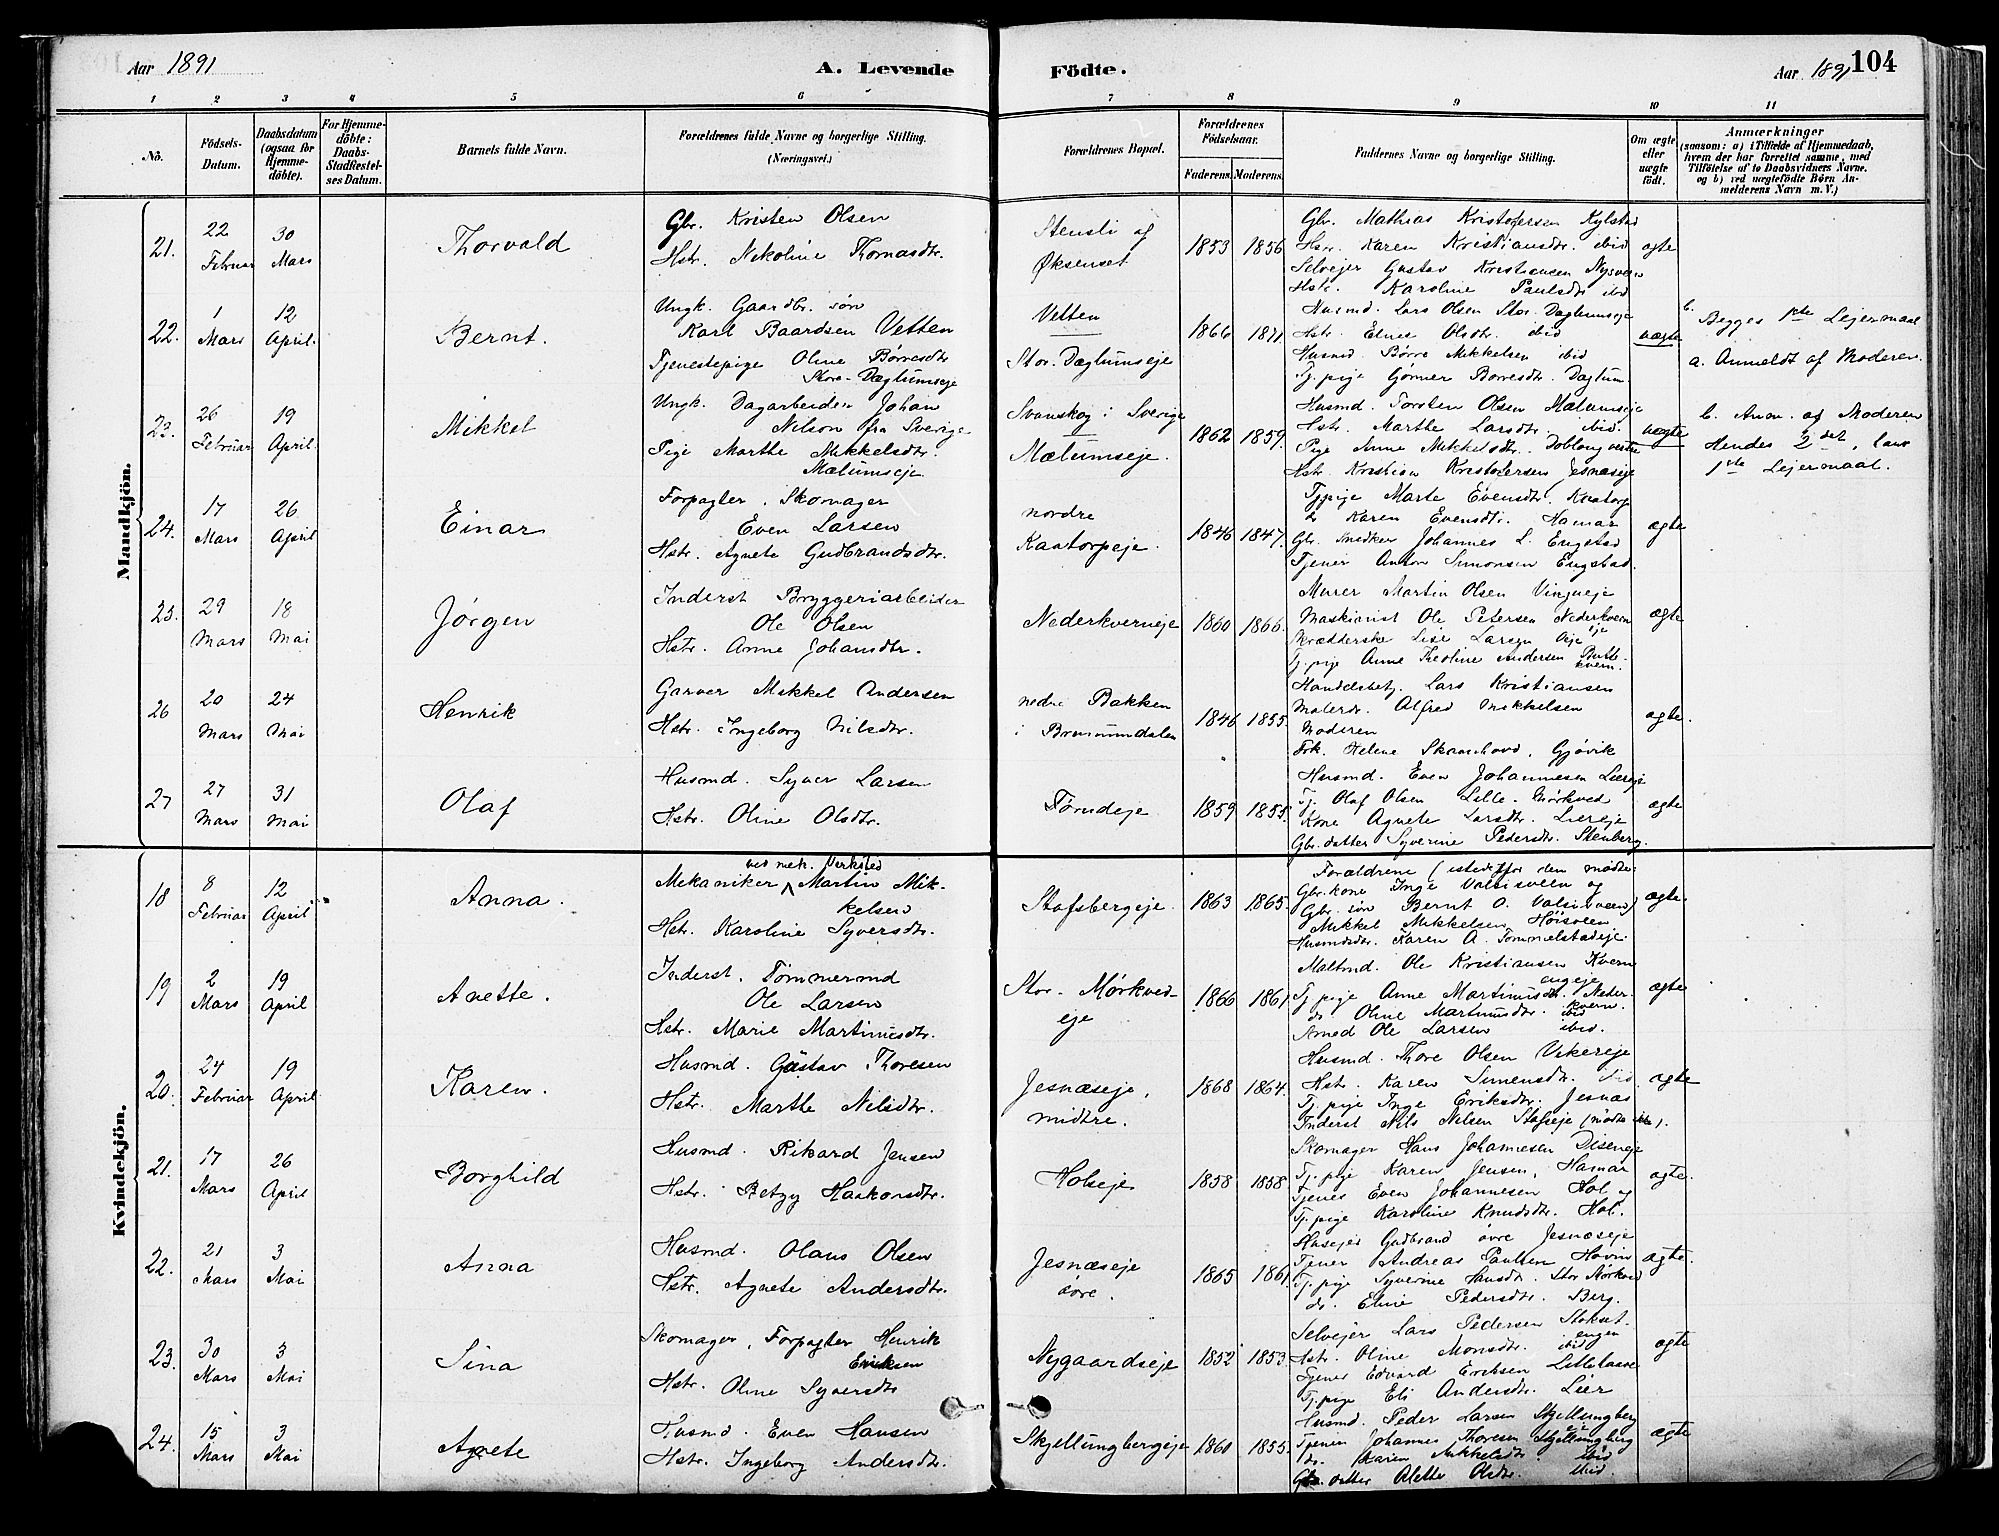 Aar 1891
A. Levende
Födte.
Aar 1891
104
1 2 3 4 5 6 7 8 9 10 11
No.
Födsels-
Datum.
Daabsdatum
(ogsaa for
Hjemme-
döbte).
For Hjemme-
döbte:
Daabs-
Stadfæstel-
ses Datum.
Barnets fulde Navn.
Forældrenes fulde Navne og borgerlige Stilling.
(Næringsvei.)
Forældrenes Bopæl.
Forældrenes
Födselsaar.
Faderens. Moderens.
Faddernes Navne og borgerlige Stilling.
Om ægte
eller
uægte
födt.
Anmærkninger
(saasom: a) i Tilfælde af Hjemmedaab,
hvem der har forrettet samme, med
Tilföielse af to Daabsvidners Navne.
og b) ved uægtefödte Börn An-
melderens Navn m. V.)
Mandkjön.
21.
22 Februar
30 Mars
Thorvald
Gbr. Kristen Olsen
Hstr. Nikoline Thomasdtr.
Stensli og
Øksenset
1853 1856
Gbr. Mathias Kristofersen Kylstad
Hstr. Karen Kristiansdtr. ibid
Selvejer Gustav Kristiansen
Hstr. Karoline Paulsdtr ibid
ægte
22.
1 Mars
12 April.
Bernt.
Ungk. Gaardbr. søn
Karl Baardsen Vetten
Tjenestepige Oline Børresdtr
Store-Dæglumseje
Vetten
Stor. Dæglumseje
1866 1871
Husmd. Lars Olsen Stor. Dæglumseje
Hstr. Eline Olsdtr. ibid
Husmd. Børre Mikkelsen ibid
Tj. pige Gørner Børresdtr. Daglum.
uægte
b. Begges 1ste Lejermaal
a. Anmeldt af Moderen.
23.
26 Februar
19 April.
Mikkel
Ungk. Dagarbeider Johan
Nilson fra Sverige
Pige Marthe Mikkelsdtr.
Mælumseje
Svanskog i Sverige
Mælumseje.
1862 1859.
Husmd. Torsten Olsen Mælumseje
Hstr. Marthe Larsdtr. ibid.
Pige Anne Mikkelsdtr.
Hstr. Kristian Kristofersen Jesnæseje
uægte
b. Anm. af Moderen
Hendes 2det, hans
1ste Lejermaal.
24.
17 Mars
26 April
Einar
Forpagter. Skomager
Even Larsen
Hstr. Agnete Gudbrandsdtr.
nordre
Kaatorpeje.
1846 1847.
Tjpige Marte Evensdtr. Kaatorp
Karen Evensdtr. Hamar
Gbr. Snedker Johannes L. Engstad
Tjener Anton Simonsen Engstad.
ægte
25.
29 Mars
18 Mai
Jørgen
Inderst Bryggeriarbeider
Ole Olsen
Hstr. Anne Johansdtr.
Nederkverneje
1860 1866.
Murer Martin Olsen Vingneje
Maskinist Ole Petersen Nederkvern
Skrædderske Lise Larsen
Tj. pige Anne Andersen
ægte
26
20 Mars
24 Mai
Henrik
Garver Mikkel Andersen
Hstr. Ingeborg Nilsdtr.
nedre Bakken
i Brumunddalen
1846 1855.
Handelsbetj. Lars Kristiansen
Malerdr. Alfred Mikkelsen
Moderen
Frk. Helene Gjøvik
ægte.
27
27 Mars
31 Mai
Olaf
Husmd. Syver Larsen
Hstr. Oline Olsdtr.
Førndeje
1859 1855.
Husmd. Even Johannesen Liereje
Tj. Olaf Olsen Lille. Mørkved
Kone Agnete Larsdtr. Liereje
Gbr. datter Syverine Pedersdtr. Stenberg.
ægte
Kvindekjön.
18
8 Februar
12 April
Anna.
ved mek. Verksted
Mekaniker Martin Mik-
kelsen
Hstr. Karoline Syversdtr.
Stafsbergeje.
1863 1865.
Forældrene (istedetfor dem mødte:
Gbr. kone Inge Valsisveen og
Gbr. søn Bernt O. Valsisveen)
Mikkel Mikkelsen Høisveen
Husmdsdr. Karen A. Tommelstadeje
ægte.
19
2 Mars
19 April
Anette.
Inderst. Tømmermd
Ole Larsen
Hstr. Marie Martinusdtr.
Stor. Mørkved-
eje
1866 1861
Maltmd. Ole Kristiansen Kvern
Tj. pige Anne Martinusdtr. Neder-
kvern.
ds Oline Martinusdtr. ibid
Arned Ole Larsen ibid.
ægte
20.
24 Februar
19 April
Karen.
Husmd. Gustav Thoresen
Hstr. Marthe Nilsdtr.
Jesnæseje,
midtre.
1868 1864.
Husmd. Thore Olsen Vikereje
Hstr. Karen Simensdtr. ibid.
Tj. pige Inge Eriksdtr. Jesnæs
Inderst Nils Nilsen Stafseje (mødte ikke).
ægte
21.
17 Mars
26 April
Borghild
Husmd. Rikard Jensen
Hstr. Betzy Haakonsdtr.
Holseje
1858 1858.
Skomager Hans Johannesen Diseneje
Tj. pige Karen Jensen, Hamar
Tjener Even Johannesen Hol og
Tj. pige Karoline Knudsdtr. Hol.
ægte.
22.
21 Mars
3 Mai
Anna
Husmd. Olaus Olsen
Hstr. Agnete Andersdtr.
Jesnæseje
øvre.
1865 1861.
Husejer Gudbrand øvre Jesnæseje
Tjener Andreas Paulsen Hovin
Tj. pige Syverine Hansdtr. Stor Mørkved
ds. Eline Pedersdtr. Berg.
ægte.
23.
30 Mars
3 Mai
Sina
Skomager, Forpagter Henrik
Eriksen
Hstr. Oline Syversdtr
Nygaardseje
1852 1853.
Selvejer Lars Pedersen Stokset-
engen
Hstr. Oline Monsdtr. ibid
Tjener Edvard Eriksen
Tj. pige Eli Andersdtr. Lier
ægte
24.
15 Mars
3 Mai
Agnete
Husmd. Even Hansen
Hstr. Ingeborg Andersdtr.
Skjellungbergeje
1860 1855.
Husmd. Peder Larsen Skjellungberg
Tjener Johannes Thoresen Skjellungberg
ds. Karen Mikkelsdtr. ibid
Gbr. datter Alette Olsdtr. ibid.
ægte